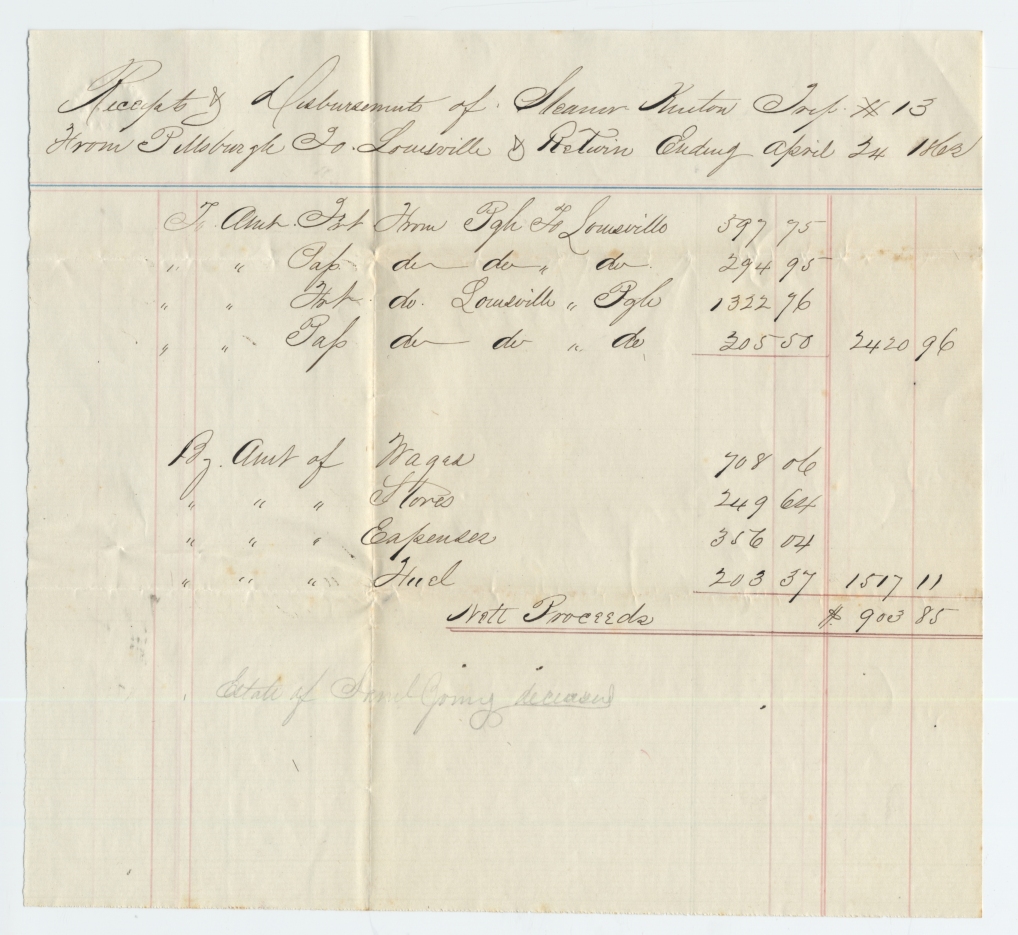 Receipts & Disbursements of Steamer Kenton Trip # 13
From Pittsburgh To Louisville & Return Ending April 24 1862
To Amt Frt From Pgh To Louisville 597 75
" " Paß do do " do 294 95
" " Frt do. Louisville " Pgh 1322 76
" " Paß do do " do 205 50 2420 96
By Amt of Wages 708 06
" " " Stores 249 64
" " " Expenses 356 04
" " " Fuel 203 37 1517 11
Nett Proceeds $ 903 85
Estate of deceased